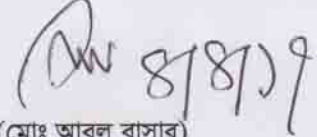 ৪/৪/১৭
(মোঃ আবুল বাসার)